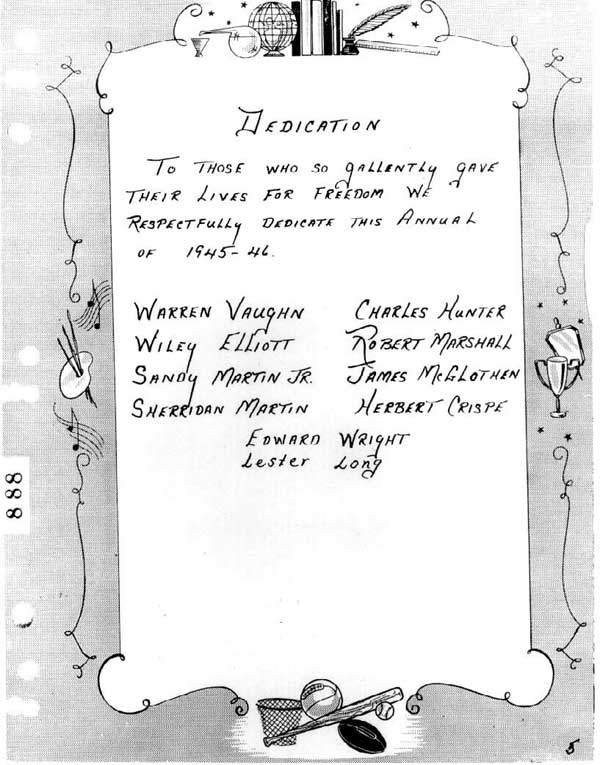 Dedication
To those who so gallently gave
their lives for freedom we
respectfully dedicate this Annual
of 1945-46.
Warren Vaughn Charles Hunter
Wiley Elliott Robert Marshall
Sandy Martin Jr. James McGlothen
Sherridan Martin Herbert Crispe
Edward Wright
Lester Long
888
5